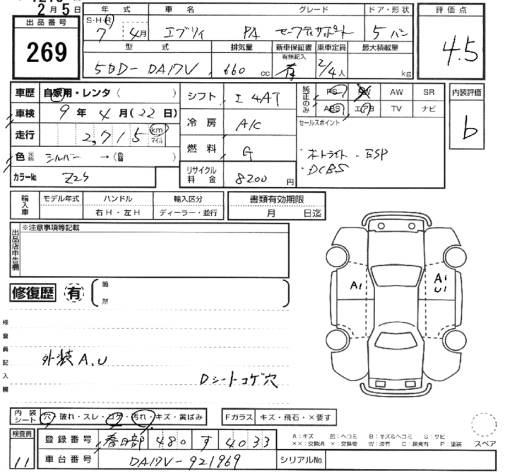 2月5日
出品番号
269
年式 車名 グレード ドア・形状
S・H・R 7年 4月 エブリィ PA セーフティサポート 5 バン
型式 排気量 新車保証書 有無記入 乗車定員 最大積載量
5BD-DA17V 660 cc 有 2/4人 kg
評価点
4.5
車歴 自家用・レンタ( )
車検 9年 4月(22日)
走行 2,715 km マイル
色 元色 シルバー → (色替 )
カラーNo. Z2S
シフト I 4AT
冷房 A/C
燃料 G
リサイクル料金 8200円
純正のみ PS PW AW SR
ABS エアB TV ナビ
セールスポイント
・オートライト ・ESP
・DCBS
内装評価
b
輸入車 モデル年式 ハンドル 輸入区分
右H・左H ディーラー・並行
書類有効期限
月 日迄
出品店申告欄
※注意事項等記載
修復歴 有
箇所
検査員記入欄
外装A.U
Dシートコゲ穴
A1
A1
U1
内装シート 穴・破れ・スレ・コゲ・汚れ・キズ・黄ばみ
Fガラス キズ・飛石・×要す
検査員
11
登録番号 春日部 480 す 4033
車台番号 DA17V-921969
シリアルNo.
スペア